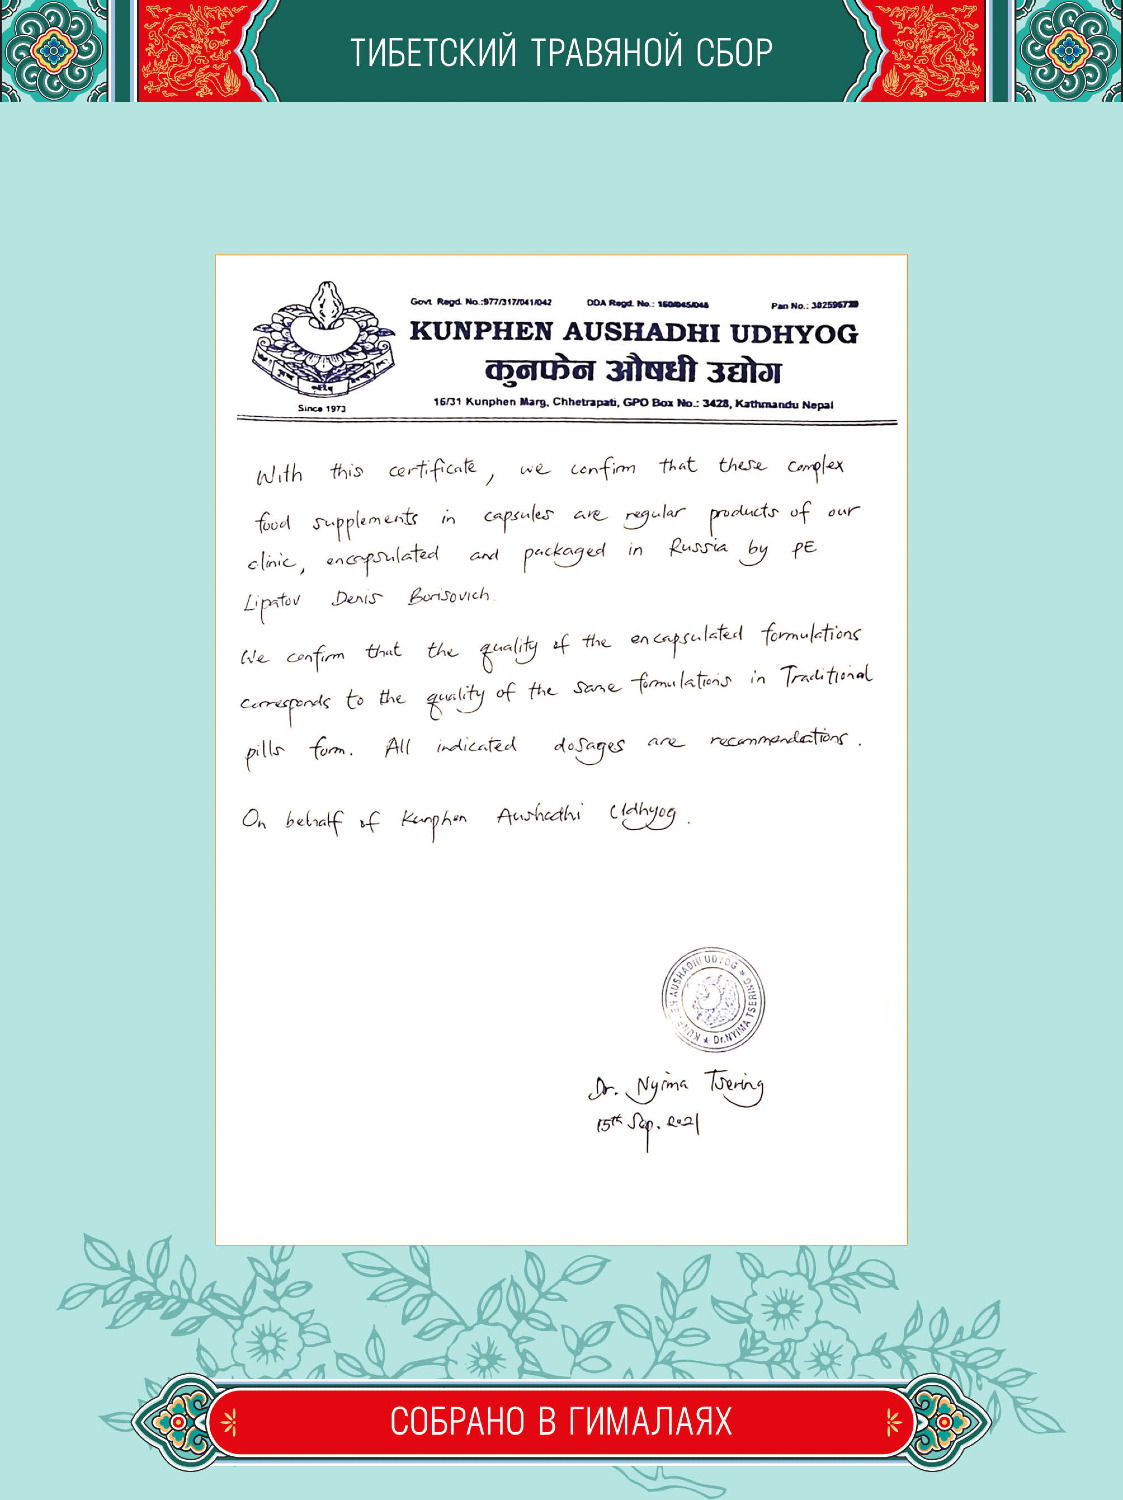 ТИБЕТСКИЙ ТРАВЯНОЙ СБОР
Govt. Regd. No.:977/317/041/042 DDA Regd. No.: 160/045/046 Pan No.:
KUNPHEN AUSHADHI UDHYOG
कुनफेन औषधी उद्योग
16/31 Kunphen Marg, Chhetrapati, GPO Box No.: 3428, Kathmandu Nepal
Since 1973
With this certificate, we confirm that these complex
food supplements in capsules are regular products of our
clinic, encapsulated and packaged in Russia by PE
Lipatov Denis Borisovich.
We confirm that the quality of the encapsulated formulations
corresponds to the quality of the same formulations in Traditional
pills form. All indicated dosages are recommendations.
On behalf of Kunphen Aushadhi Udhyog.
KUNPHEN AUSHADHI UDYOG ★ Dr.NYIMA TSERING ★
Dr. Nyima Tsering
15th Sep. 2021
СОБРАНО В ГИМАЛАЯХ